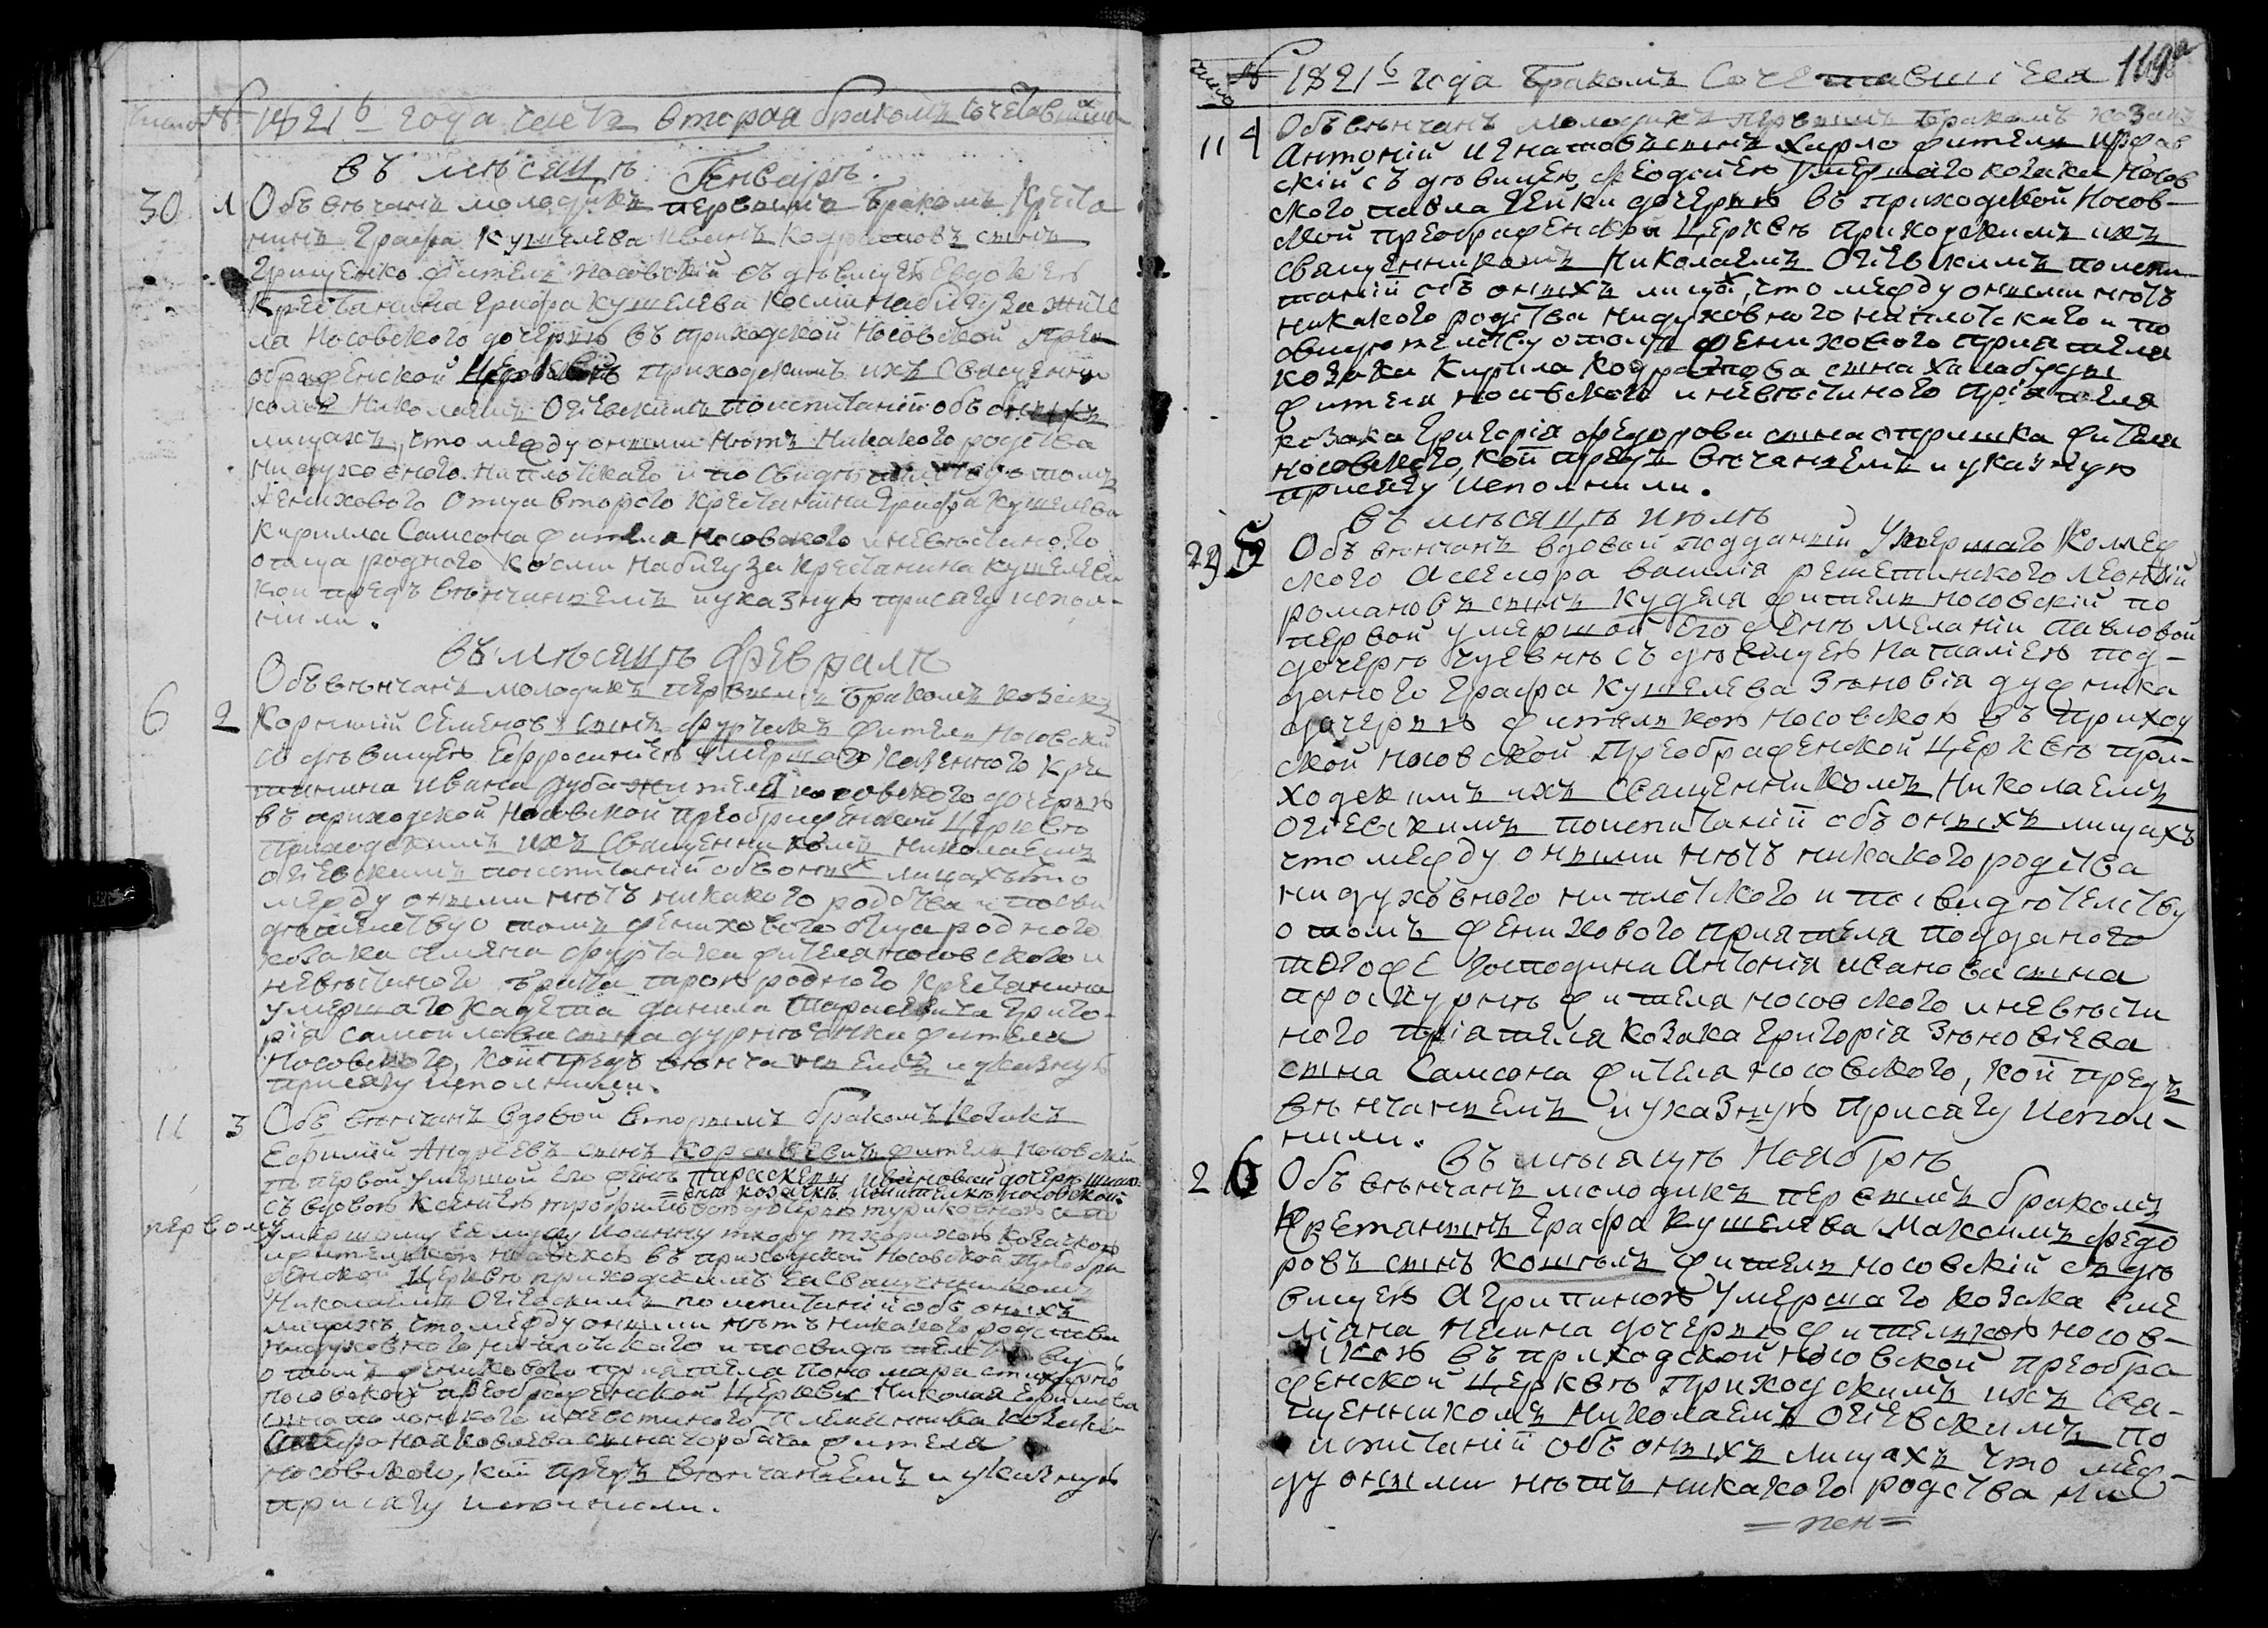 Число № 1821го года часть вторая бракомъ сочетавшихся
въ мѣсяцѣ Генварѣ.
30 1 Объвѣнчанъ молодикъ первымъ бракомъ креста
нинъ Графа Кушелева Иванъ Кодратовъ сынъ
Грищенко житель носовскій съ дѣвицею Евдокіею
крестянина Графа Кушелева Космы Набигуза жите
ля Носовского дочерью въ приходской Носовской Прео
браженской Церквѣ приходскимъ ихъ Священни
комъ Николаемъ Огіевскимъ поиспитаніи объ оныхъ
лицахъ, что между оными нѣтъ никакого родства
ни духовного ни плотскаго и по Свидѣтелству о томъ
женихового отца второго крестянина Графа Кушелева
Кирилла Самсона жителя Носовского и невѣстиного
отца родного Космы Набигуза крестянина Кушелева
кои предъ вѣнчаниемъ и указную присягу испол-
нили.
въ мѣсяцѣ Февралѣ
6 2 Объвѣнчанъ молодикъ первымъ бракомъ козакъ
Корнилій Семеновъ сынъ Фурсакъ житель Носовскій
съ дѣвицею Ефросиніею умершаго казенного кре
стянина Ивана Дуба жителя носовского дочерью
въ приходской Носовской Преображенской Церквѣ
Приходскимъ ихъ Священникомъ Николаемъ
Огіевскимъ поиспитаніи объ оныхъ лицахъ что
между оными нѣтъ никакого родства и по сви
дѣтелству о томъ женихового отца родного
козака Семена Фурсака жителя носовского и
невѣстиного брата троюродного крестянина
умершаго кадета Данила Тарасевича Григо-
рія Самойлова сына Дурнѣенка жителя
Носовского, кои предъ вѣнчаниемъ и указную
присягу исполнили.
11 3 Объвѣнчанъ вдовой вторымъ бракомъ козакъ
Ефимій Андреевъ сынъ житель Носовскій
по первой умершой его женѣ Параскевіи Ивановой дочерѣ
козачкѣ жителкѣ носовской
съ вдовою Ксеніею Трофимовою дочерью по
первому
умершому ея мужу козачкою
и жителкою носовскою въ приходской Носовской Преобра
женской Церквѣ приходскимъ ея Священникомъ
Николаемъ Огіевскимъ по испитаніи объ оныхъ
лицахъ, что между оными нѣтъ никакого родства
ни духовного ни плотскаго и по свидѣтелству
о томъ женихового приятеля пономара
носовской Преображенской Церкви Николая Ефимова
сына и невѣстиного племенника козака
Яковлева сына Горбача жителя
носовского, кои предъ вѣнчаниемъ и указную
присягу исполнили.
Число № 1821го года Бракомъ Сочетавшіеся 169
11 4 Объвѣнчанъ молодикъ первымъ бракомъ козакъ
Антоній Игнатовъ сынъ Хирло житель носов
скій съ дѣвицею Феодосіею умершаго козака Носов
ского Павла Гейки дочерью въ приходской Носов-
ской Преображенской Церквѣ приходскимъ ихъ
священникомъ Николаемъ Огіевскимъ поиспи
таніи объ оныхъ лицахъ, что между оными нѣтъ
никакого родства ни духовного ни плотскаго и по
свидѣтелству о томъ женихового приятеля
козака Кирила Кодратова сына Халабурды
жителя носовского и невѣстиного пріятеля
козака Григорія Федорова сына Опришка жителя
носовского, кои предъ вѣнчаниемъ и указную
присягу исполнили.
въ мѣсяцѣ июлѣ
29 5 Объвѣнчанъ вдовой подданый умершаго Коллеж
ского Асессора Василія Решетинского Леонтій
романовъ сынъ Куделя житель носовскій по
первой умершой его женѣ Меланіи Павловой
дочерѣ съ дѣвицею Наталіею под-
даного Графа Кушелева Зѣновія Дудника
дочерью жителкою носовскою въ приход
ской носовской Преображенской Церквѣ при-
ходскимъ ихъ Священникомъ Николаемъ
Огіевскимъ поиспитаніи объ оныхъ лицахъ
что между оными нѣтъ никакого родства
ни духовного ни плотского и по свидѣтелству
о томъ женихового приятеля подданого
тогоже господина Антонія Иванова сына
Проскурнѣ жителя носовского и невѣсти
ного пріятеля козака Григорія Зѣновіева
сына Самсона жителя носовского, кои предъ
вѣнчаниемъ и указную присягу испол-
нили.
въ мѣсяцѣ Ноябрѣ
2 6 Объвѣнчанъ молодикъ первымъ бракомъ
Крестянинъ Графа Кушелева Максимъ Федо
ровъ сынъ житель носовскій съ дѣ
вицею Агрипиною умершаго козака Еме
ліана Нелина дочерью жителкою носов-
скою въ приходской носовской Преобра
женской Церквѣ Приходскимъ ихъ Свя-
щенникомъ Николаемъ Огіевскимъ по
испитаніи объ оныхъ лицахъ что меж-
ду оными нѣтъ никакого родства ни